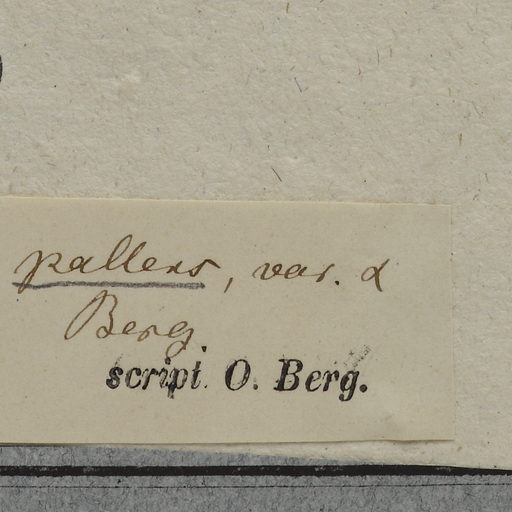 pallens, var. α
Berg.
script. O. Berg.